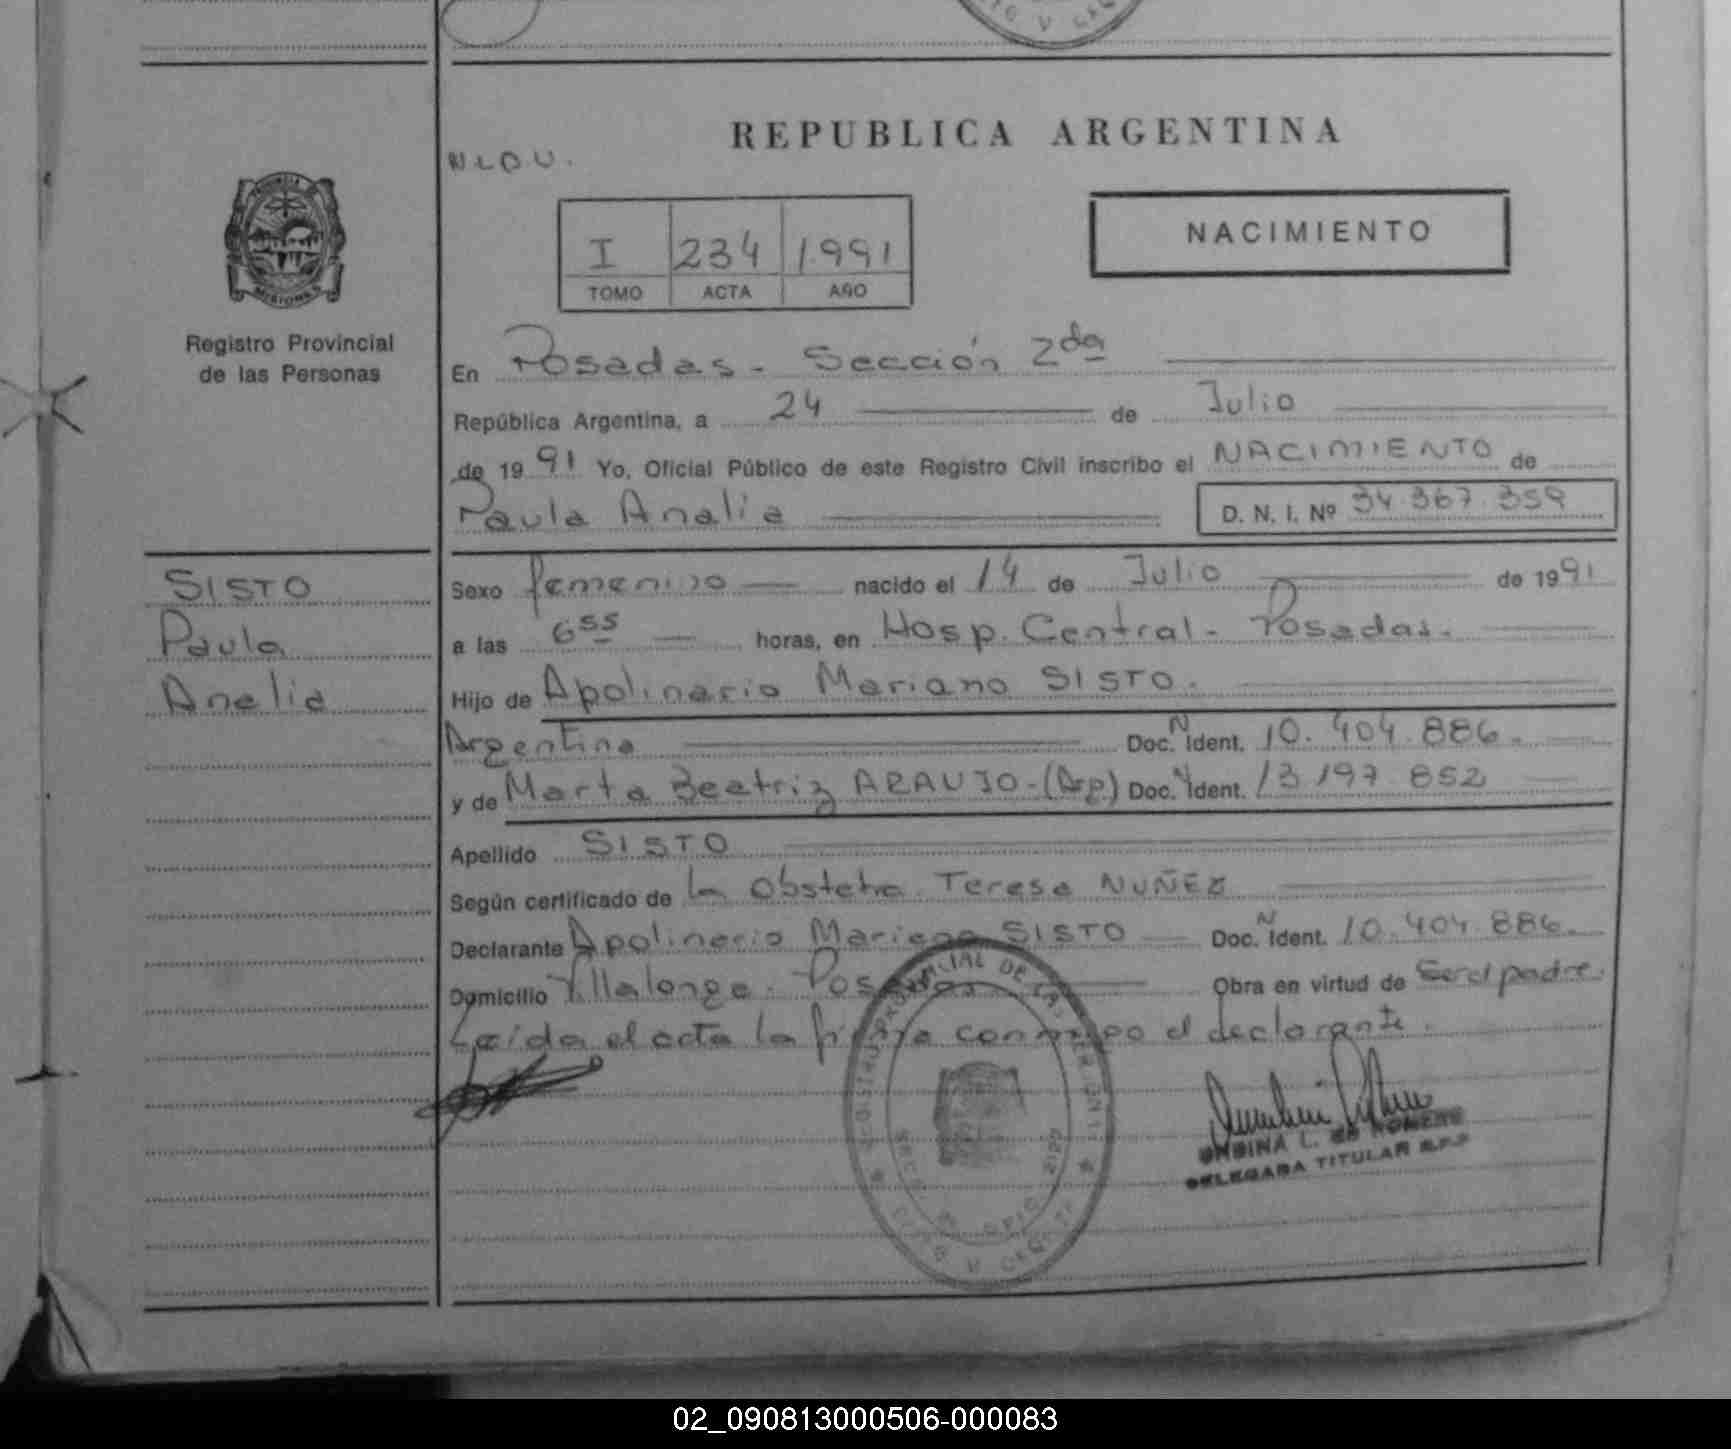 REPUBLICA ARGENTINA
N.L.D.U.
NACIMIENTO
I 234 1.991
TOMO ACTA AÑO
MISIONES
Registro Provincial
de las Personas
En Posadas - Sección 2da
República Argentina, a 24 de Julio
de 1991 Yo, Oficial Público de este Registro Civil inscribo el NACIMIENTO de
Paula Analia D. N. I. Nº 34.367.359
SISTO
Paula
Analia
Sexo femenino nacido el 14 de Julio de 1991
a las 6 55 horas, en Hosp. Central - Posadas.
Hijo de Apolinario Mariano SISTO.
Argentina Doc. N Ident. 10.404.886.
y de Marta Beatriz ARAUJO - (Arg) Doc. N Ident. 13.197.852
Apellido SISTO
Según certificado de la Obstetra Teresa NUÑEZ
Declarante Apolinario Mariano SISTO Doc. N Ident. 10.404.886.
Domicilio Villalonga. Posadas Obra en virtud de Ser el padre.
Leida el acta la firma conmigo el declarante.
ONDINA L. DE ROMERO
DELEGADA TITULAR R.P.P
02_090813000506-000083